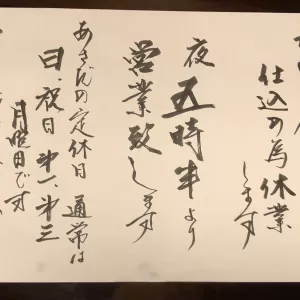 仕込の為休業
します
夜五時半より
営業致します
あさだの定休日 通常は
日、祝日 第一、第三
月曜日です